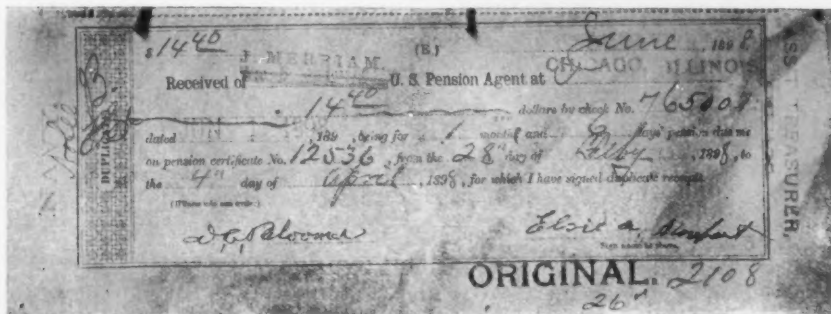 $14 40 (E.) June, 1898.
J. MERRIAM. CHICAGO, ILLINOIS
Received of U. S. Pension Agent at
14 40 dollars by check No. 765008
dated , 189 , being for 1 month and days' pension due me
on pension certificate No. 12536, from the 28" day of Feby, 1898, to
the 4" day of april, 1898, for which I have signed duplicate receipts.
D. C. Bloomer Elsie a.
Sign name in
ORIGINAL. 2108
26
DUPLICATE
TREASURER,